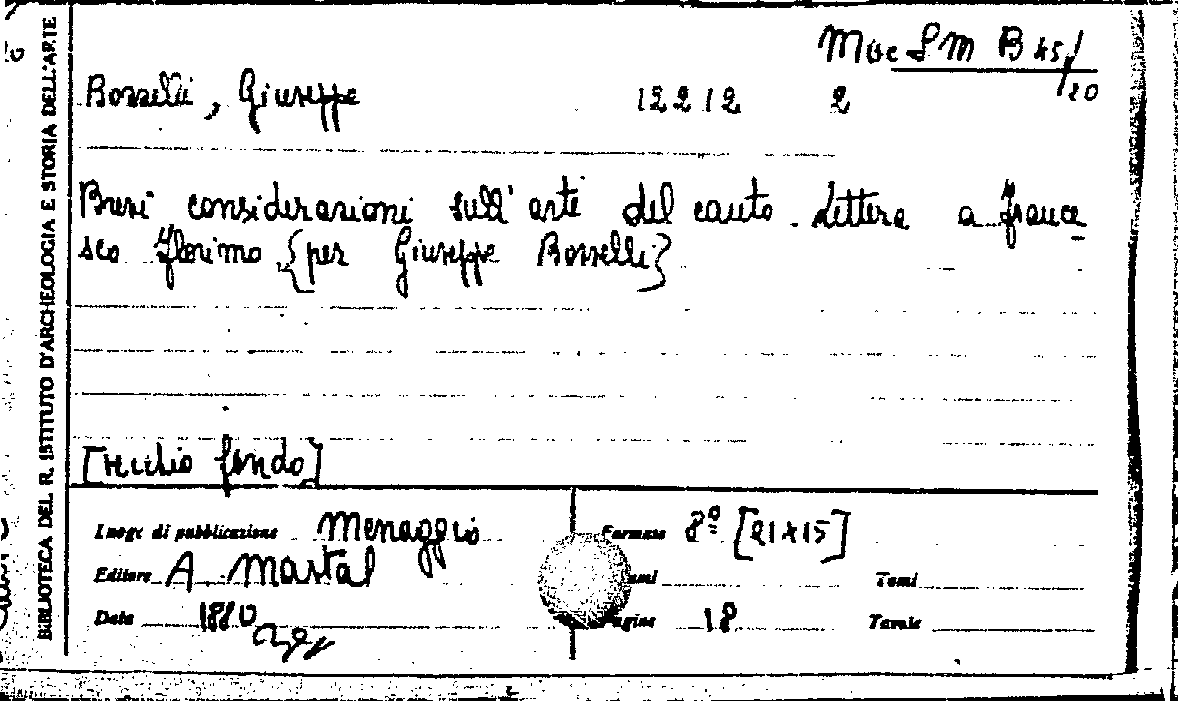 BIBLIOTECA DEL R. ISTITUTO D'ARCHEOLOGIA E STORIA DELL'ARTE
Misc S M B 45/20
Borselli, Giuseppe 12212 2
Brevi considerazioni sull'arte del canto. Lettera a France
sco Florimo {per Giuseppe Borselli}
[vecchio fondo]
Luogo di pubblicazione Menaggio
Formato 8º [21x15]
Editore A Martal
Tomi
Data 1880
Pagine 18
Tavole